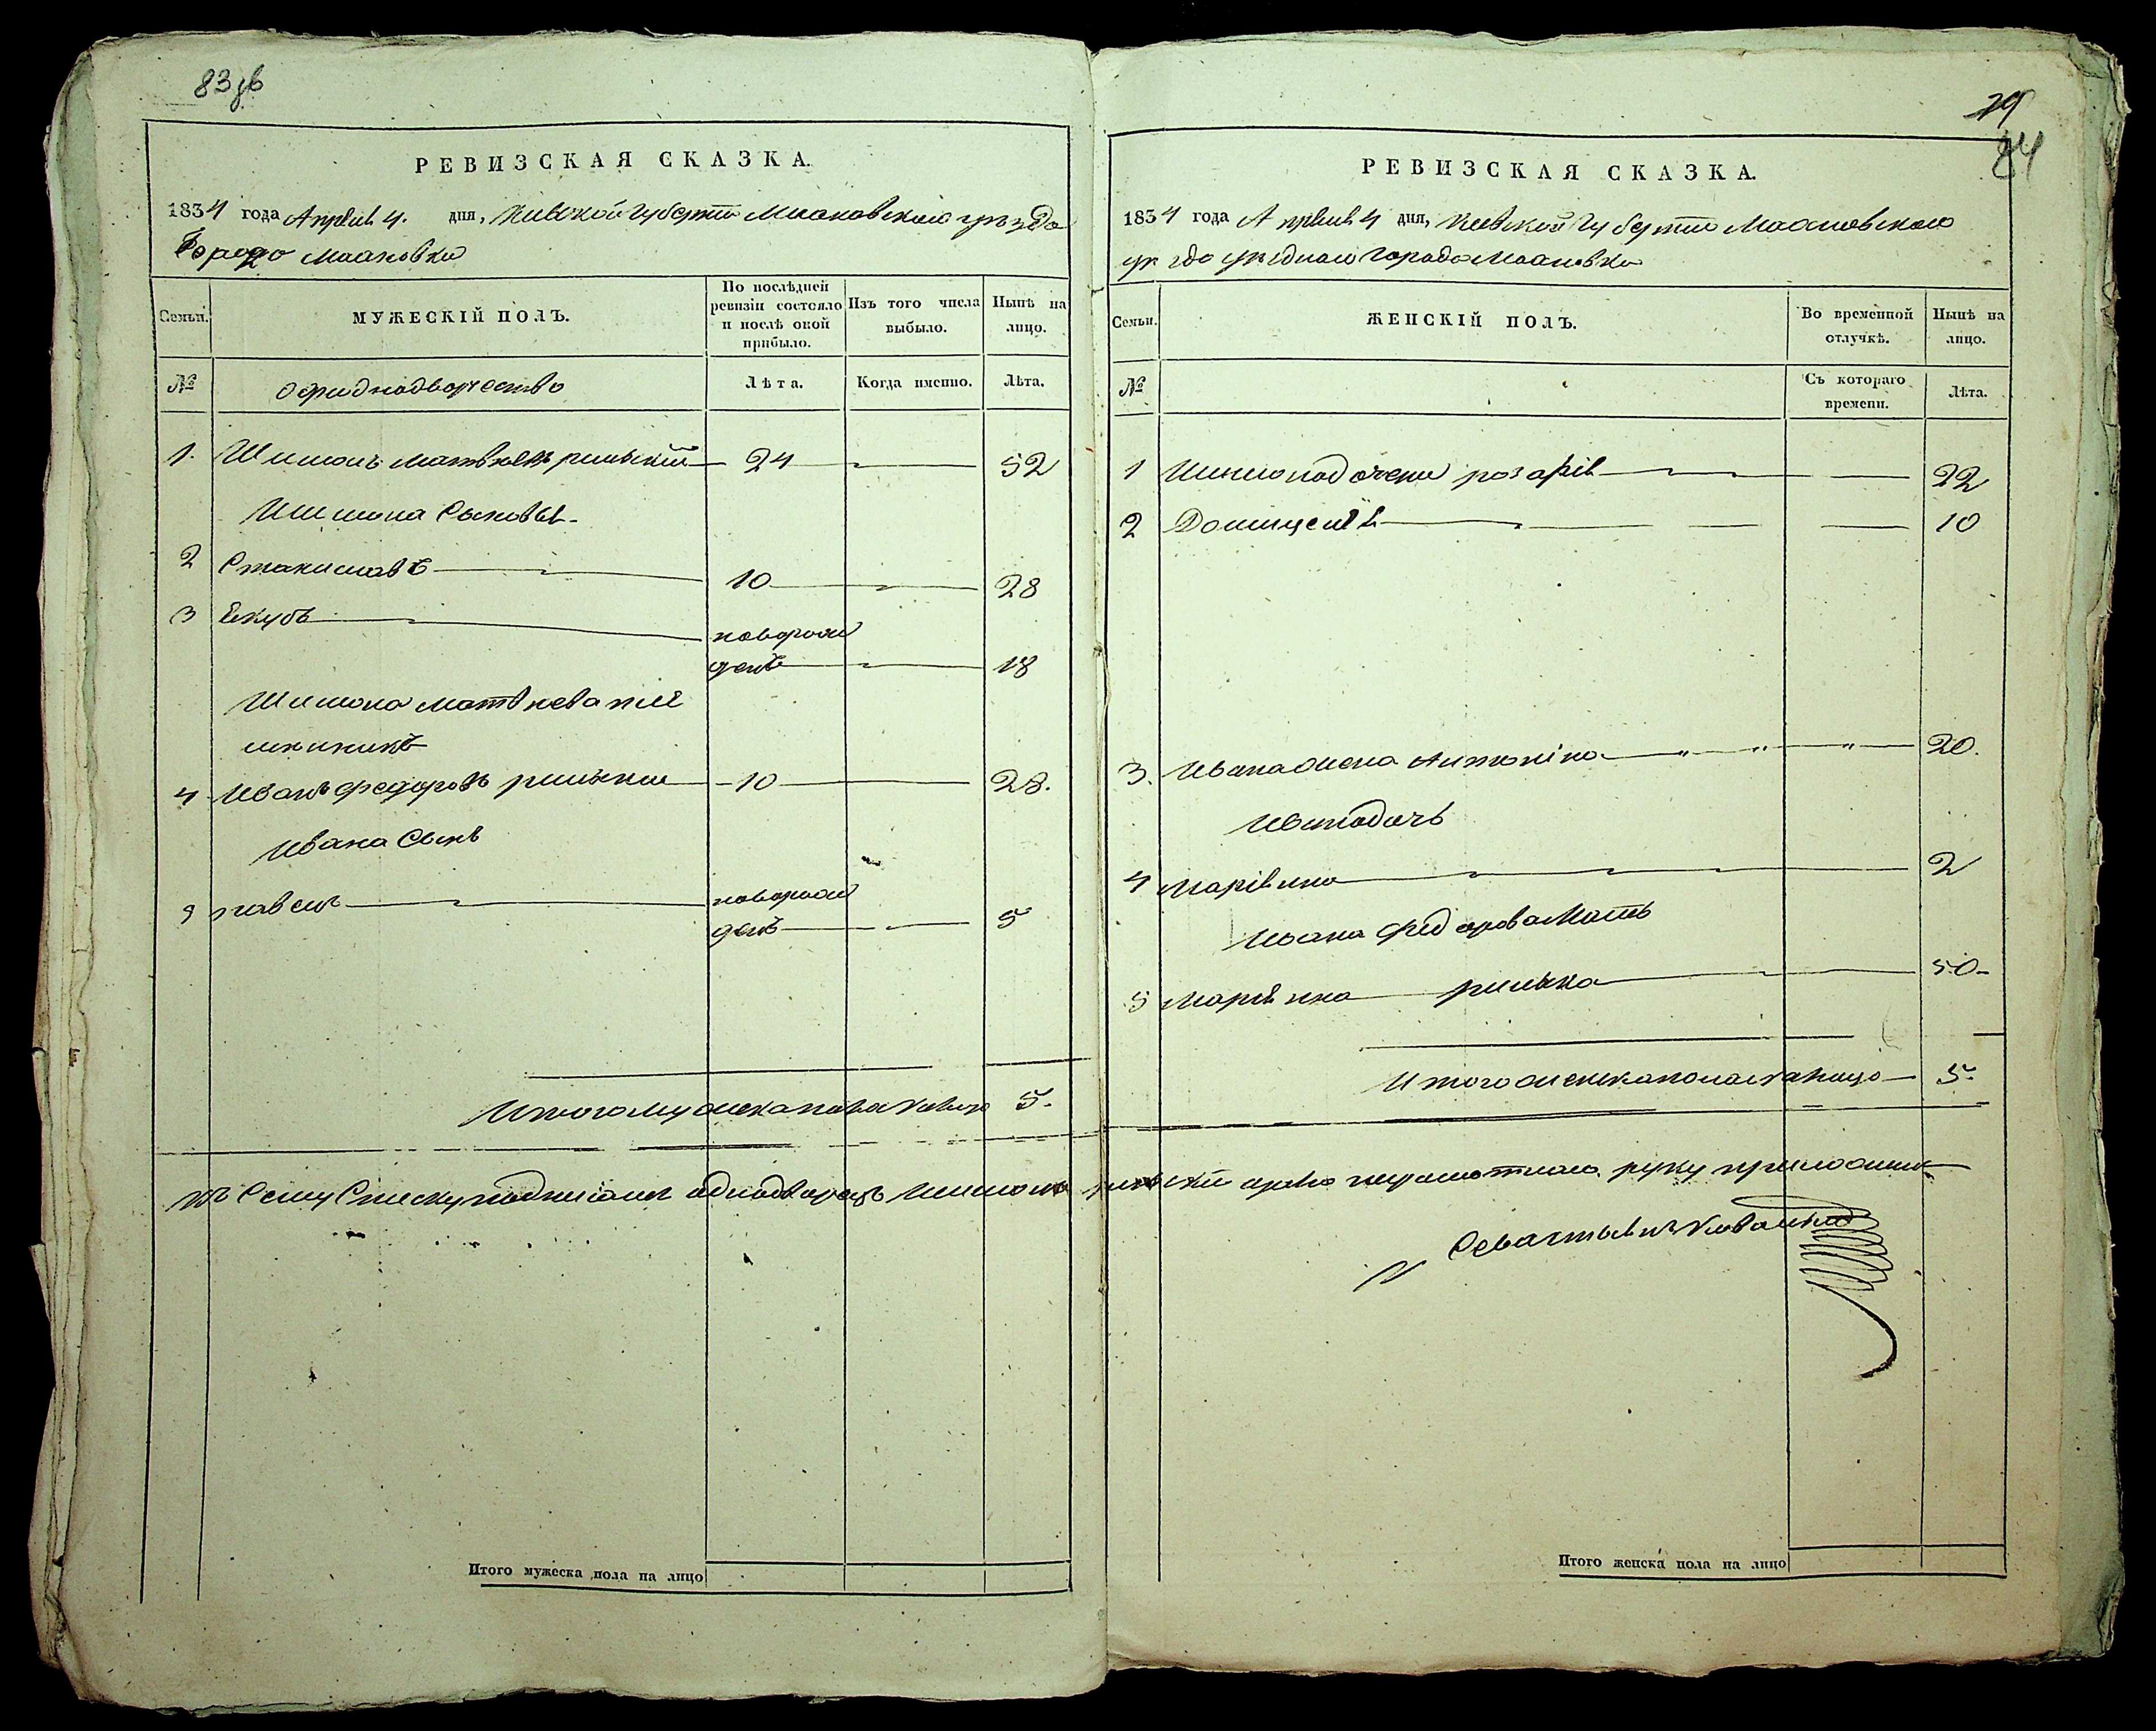 83 об
РЕВИЗСКАЯ СКАЗКА.
1834 года Апреля 4. дня, Киевской Губернии Махновского уезда
Города Махновки
Семьи.
МУЖЕСКІЙ ПОЛЪ.
По послѣдней ревизіи состояло и послѣ оной прибыло.
Изъ того числа выбыло.
Нынѣ на лицо.
№
Лѣта.
Когда именно.
Лѣта.
1. Шимонъ Матвѣевъ 24 52
Шимона Сыновья
2 Станиславъ 10 28
3 Якубъ новорож
денъ 18
Шимона Матвѣева пле
мянникъ
4 Иванъ Федоровъ 10 28.
Ивана Сынъ
5 Павелъ новорож
денъ 5
Итого мужеска пола на лицо 5.
Итого мужеска пола на лицо
79
84
РЕВИЗСКАЯ СКАЗКА.
1834 года Апреля 4 дня, Киевской Губернии Махновского
уезда уездного города Махновки
Семьи.
ЖЕНСКІЙ ПОЛЪ.
Во временной отлучкѣ.
Нынѣ на лицо.
№
Съ котораго времени.
Лѣта.
1 Шимона дочери Розалія 22
2 10
3. Ивана жена Антонина 20.
Ивана дочь
4 Маріяна 2
Ивана Федорова Мать
5 Маріяна 50
Итого женска пола на лицо 5.
Къ Сему Списку подписался однодворецъ Шимонъ неграмотного руку приложилъ
Севастьянъ
Итого женска пола на лицо